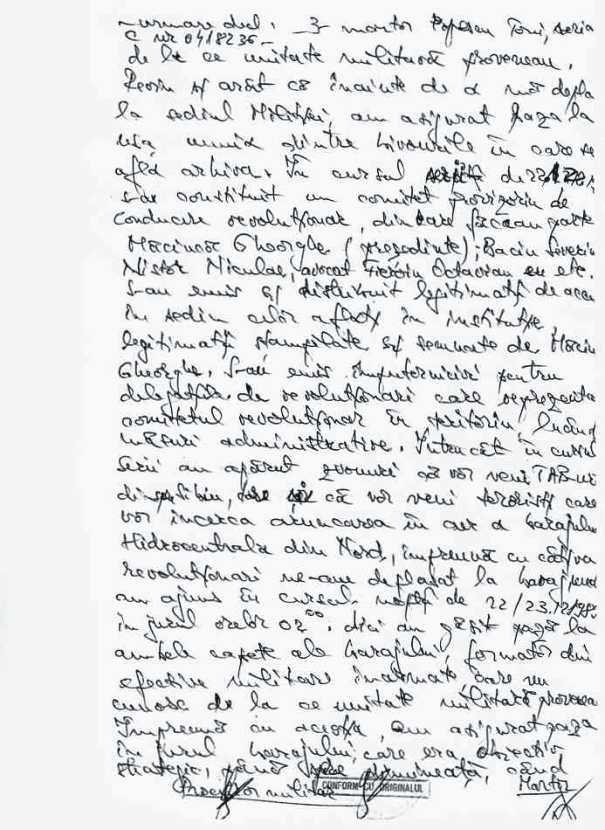 - urmare decl. - 3 - martor Popescu Toni, seria
C nr 0418236 -
de la ce unitate militară proveneau.
Revin și arăt că înainte de a mă depla
la sediul Miliției, am asigurat paza la
ușa unuia dintre birourile în care se
afla arhiva. În cursul de 22.12.89,
s-a constituit un comitet provizoriu de
conducere revoluționar, din care făceau parte
Gheorghe (președinte); Baciu
Nistor Niculae, avocat Octavian etc.
S-au emis și distribuit legitimații de acces
în sediu celor aflați în instituție,
legitimații ștampilate și semnate de
Gheorghe. S-au emis împuterniciri pentru
delegațiile de revoluționari care reprezenta
comitetul revoluționar în teritoriu, luând
măsuri administrative. Întrucât în cursul
serii au apărut zvonuri că vor veni TAB-uri
din Sibiu, că vor veni teroriști care
vor încerca aruncarea în aer a barajului
Hidrocentrala din Nord, împreună cu câțiva
revoluționari ne-am deplasat la barajul
am ajuns în cursul nopții de 22/23.12.1989
în jurul orelor 02⁰⁰. Aici am găsit pază la
ambele capete ale barajului, formată din
efective militare înarmate care nu
cunosc de la ce unitate militară proveneau
Împreună cu aceștia, am asigurat paza
în jurul barajului, care era obiectiv
strategic, până spre dimineață, când
Procuror militar CONFORM CU ORIGINALUL Martor